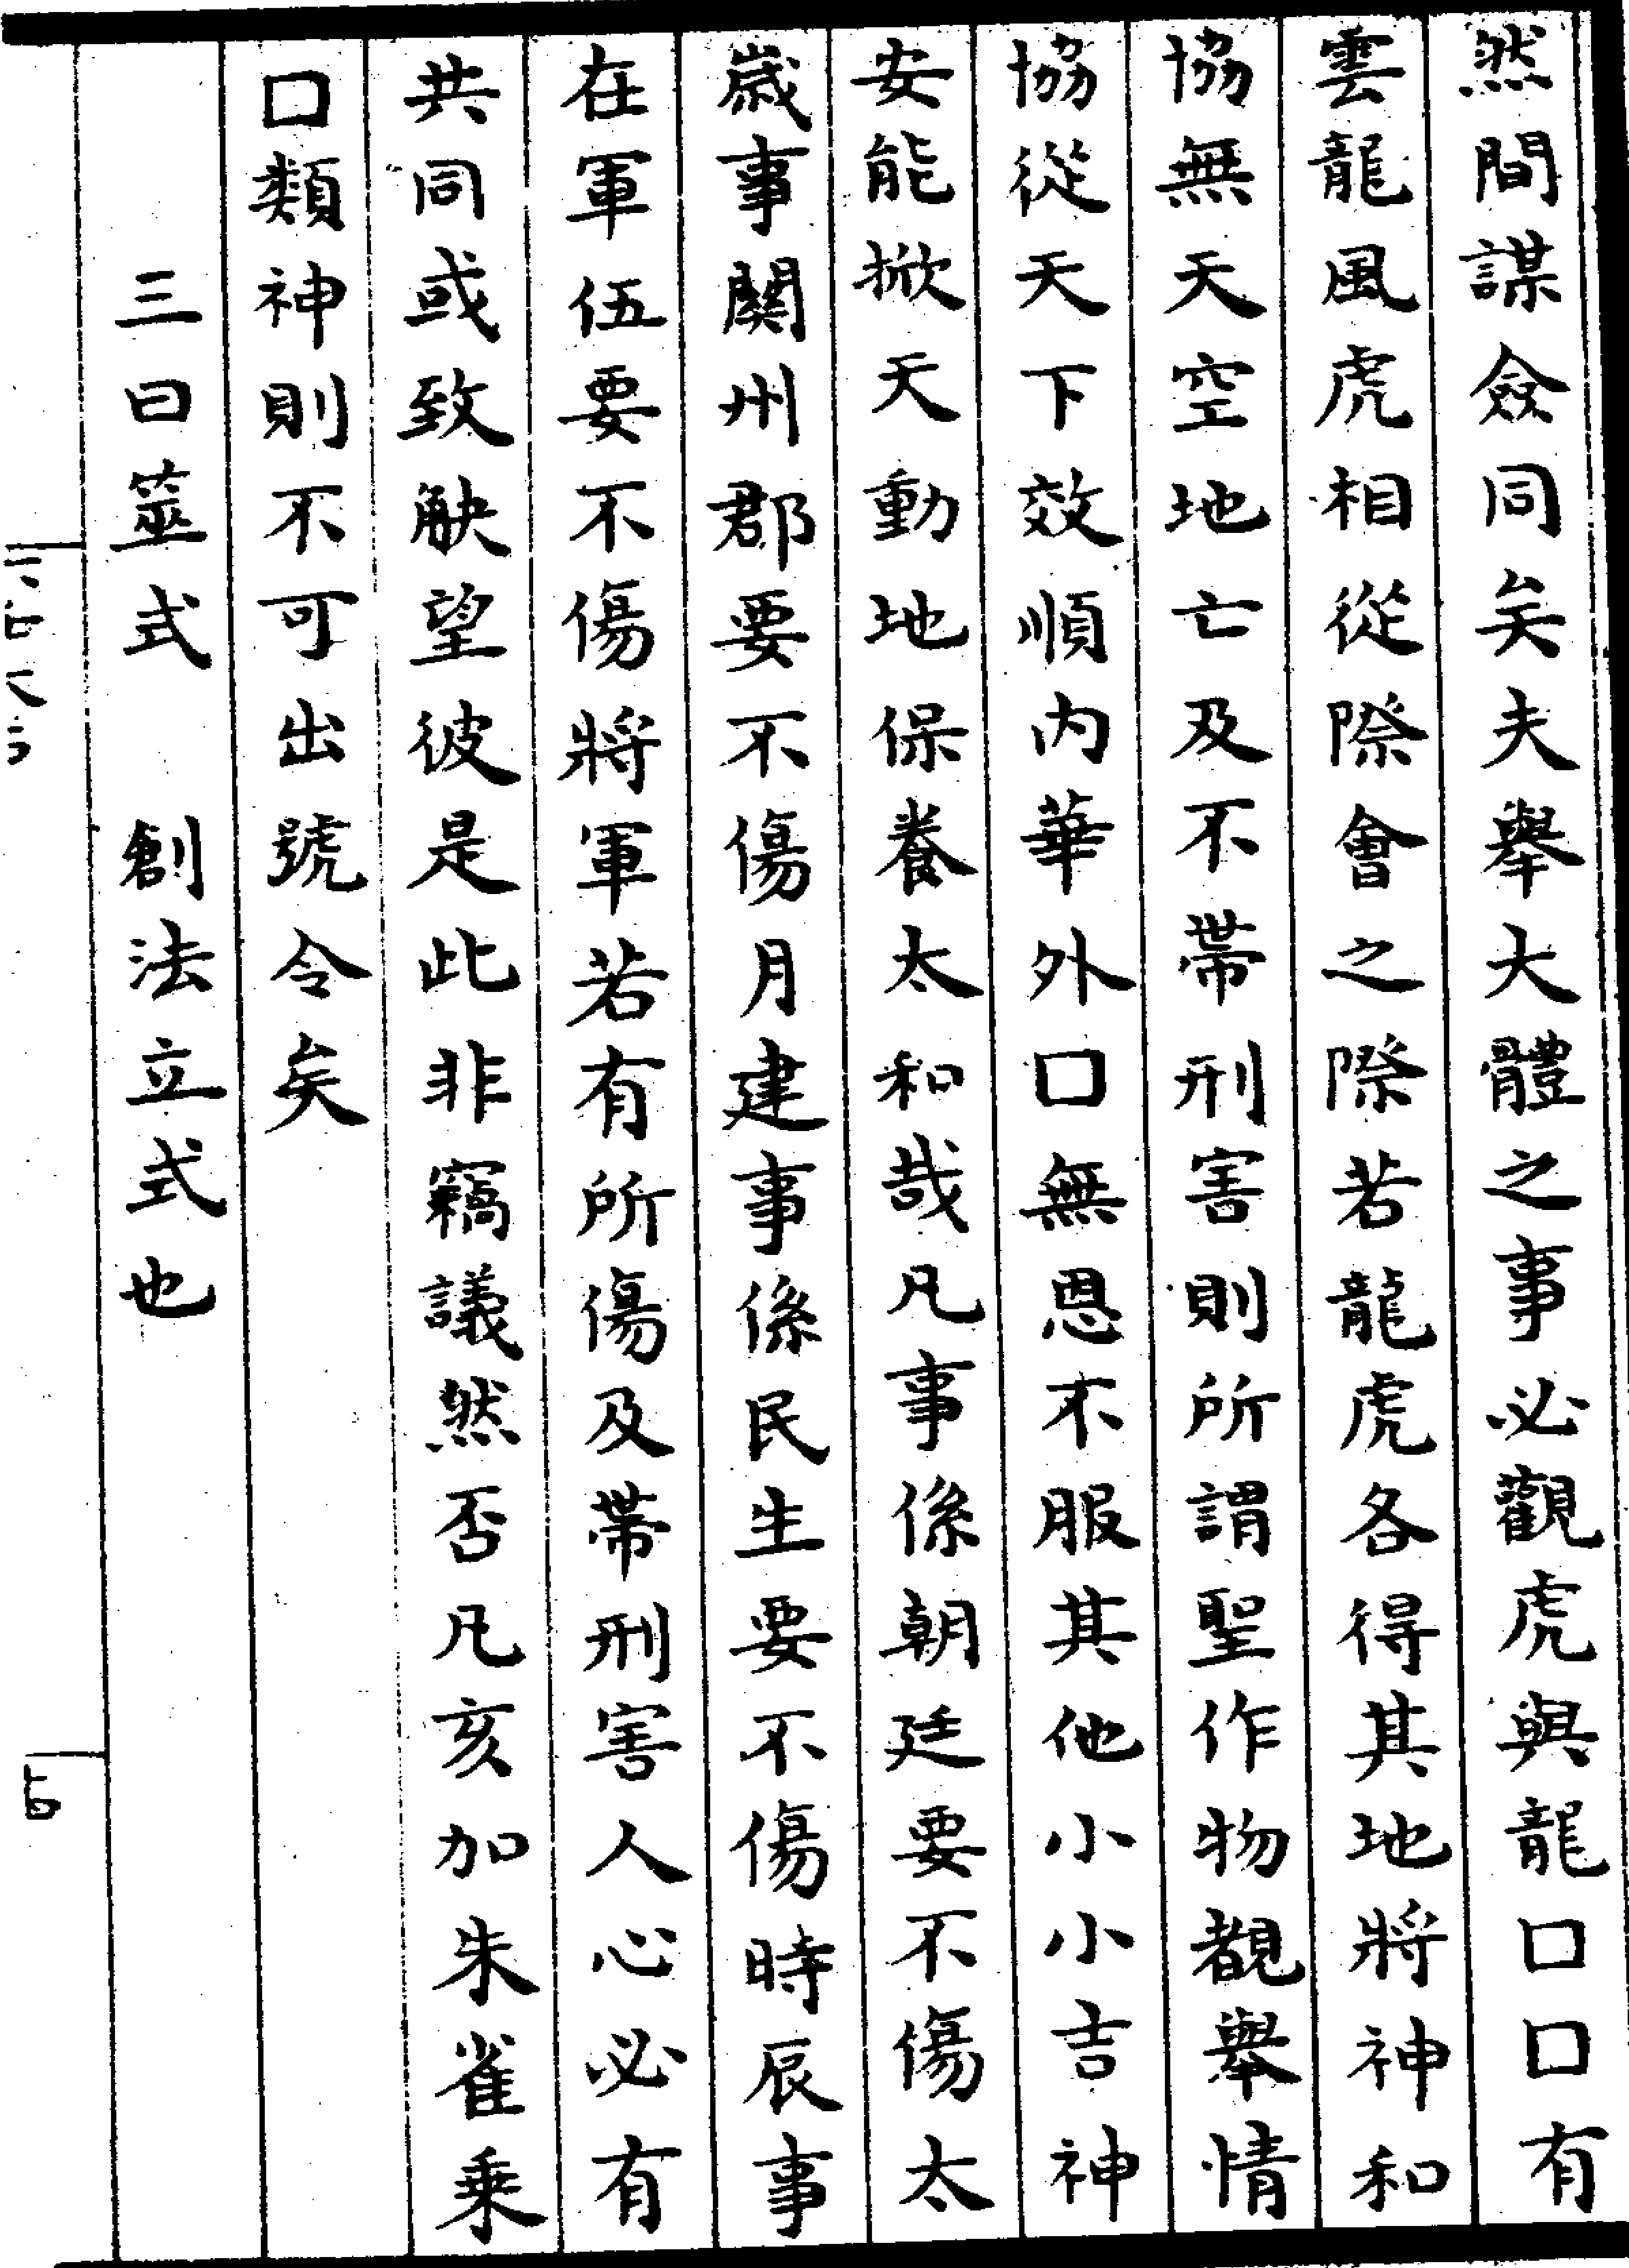 然間謀僉同矣夫舉大體之事必觀虎與龍口口有
雲龍風虎相從際會之際若龍虎各得其地將神和
協無天空地亡及不帶刑害則所謂聖作物覩舉情
協從天下效順內華外口無思不服其他小小吉神
安能掀天動地保養太和哉凡事係朝廷要不傷太
歲事關州郡要不傷月建事係民生要不傷時辰事
在軍伍要不傷將軍若有所傷及帶刑害人心必有
共同或致觖望彼是此非竊議然否凡亥加朱雀乘
口類神則不可出號令矣
三曰筮式　創法立式也